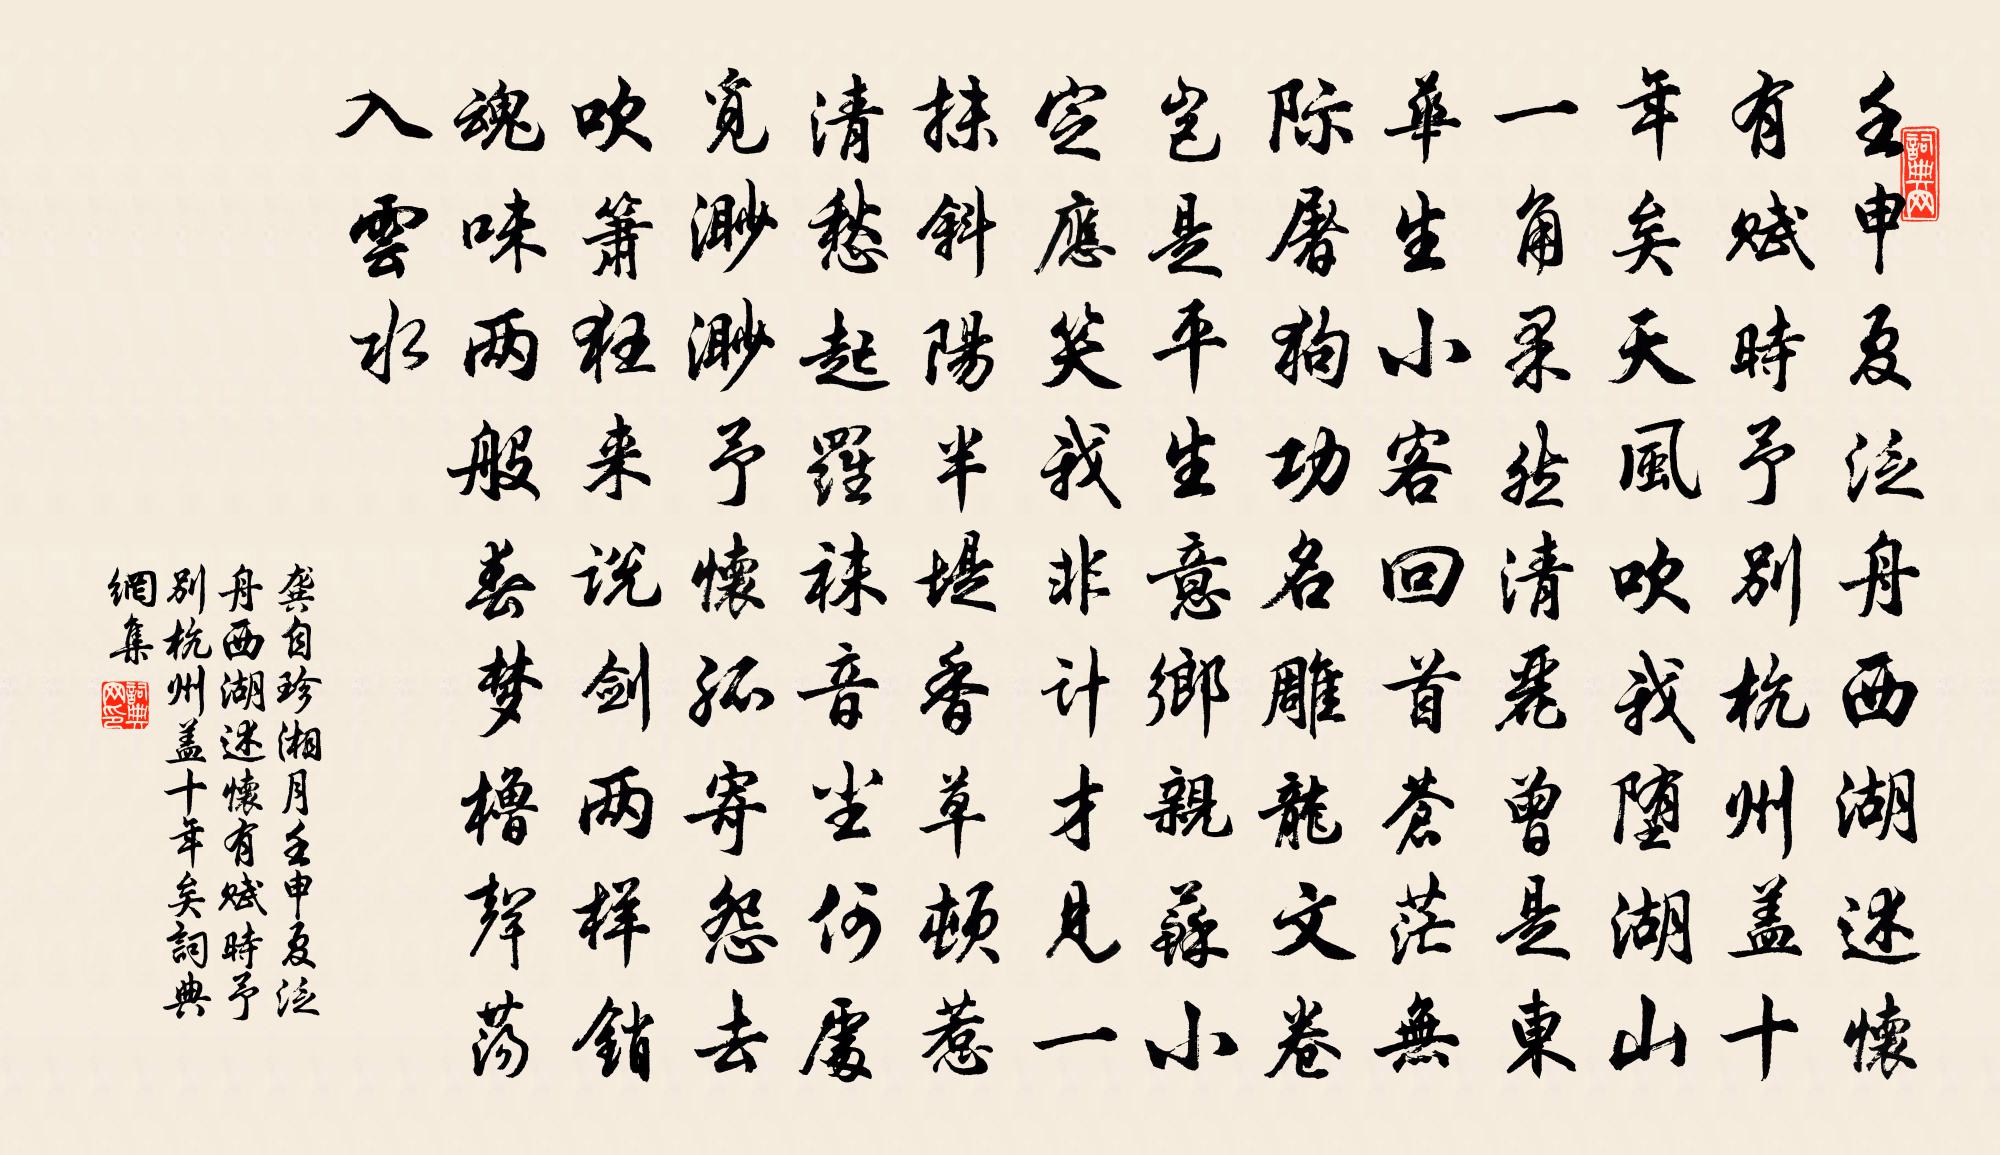 壬申夏泛舟西湖述懷
有赋時予别杭州盖十
年矣天風吹我堕湖山
一角果然清麗曾是東
華生小客回首蒼茫無
际屠狗功名雕龍文卷
岂是平生意鄉親蘇小
定應笑我非计才見一
抹斜陽半堤香草頓惹
清愁起羅袜音尘何處
覓渺渺予懷孤寄怨去
吹簫狂来说剑两样銷
魂味两般春梦櫓聲荡
入雲水
龚自珍湘月壬申夏泛
舟西湖述懷有赋時予
别杭州盖十年矣詞典
網集
詞典网
詞典网印